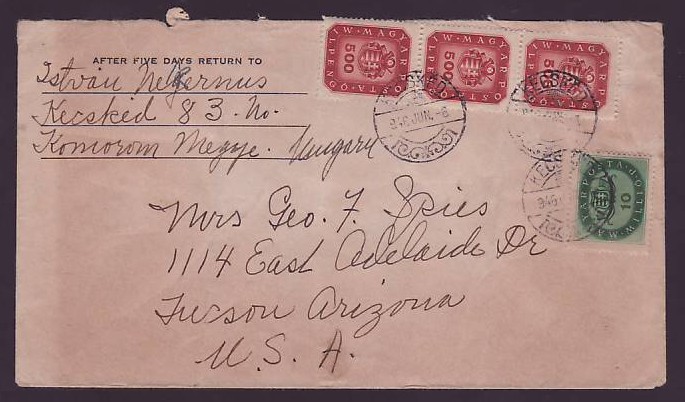 AFTER FIVE DAYS RETURN TO
István
Kecskéd 83. No.
Komárom Megye. Hungary
500
500
500
MAGYAR POSTA
MAGYAR POSTA
MAGYAR POSTA
MILPENGŐ
KECSKÉD
946 JUN.-8
KECSKÉD
10
MAGYAR POSTA
KECSKÉD
946
Mrs Geo. F. Spies
1114 East Adelaide Dr
Tucson Arizona
U. S. A.